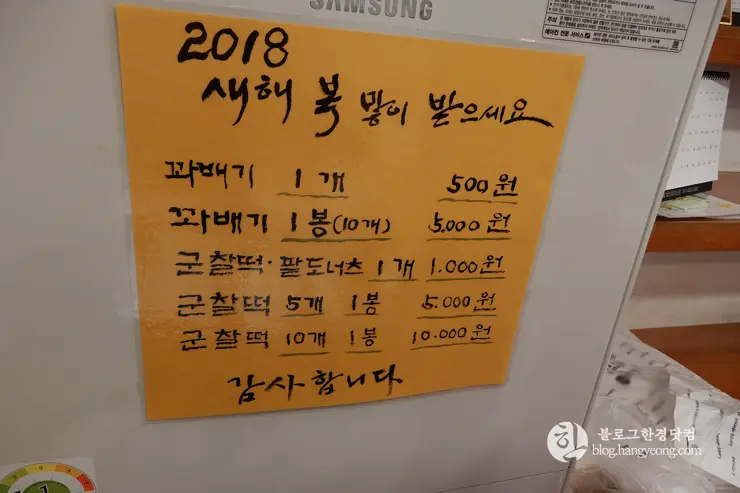 SAMSUNG
2018
새해 복 많이 받으세요
꽈배기 1개 500원
꽈배기 1봉(10개) 5.000원
군찰떡·팥도너츠 1개 1.000원
군찰떡 5개 1봉 5.000원
군찰떡 10개 1봉 10.000원
감사합니다
주의
에어컨 전문 서비스
한
블로그한경닷컴
blog.hangyeong.com
1